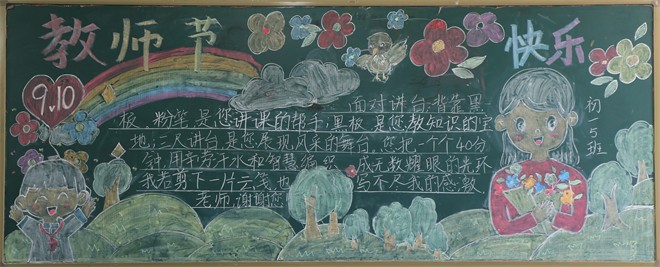 教师节 快乐
9.10
初一5班
面对讲台,背靠黑
板,粉笔是您讲课的帮手,黑板是您教知识的宝
地,三尺讲台是您展现风采的舞台。您把一个个40分
钟,用辛劳汗水和智慧编织成无数耀眼的光环
我若剪下一片云笺,也写不尽我的感激
老师,谢谢您